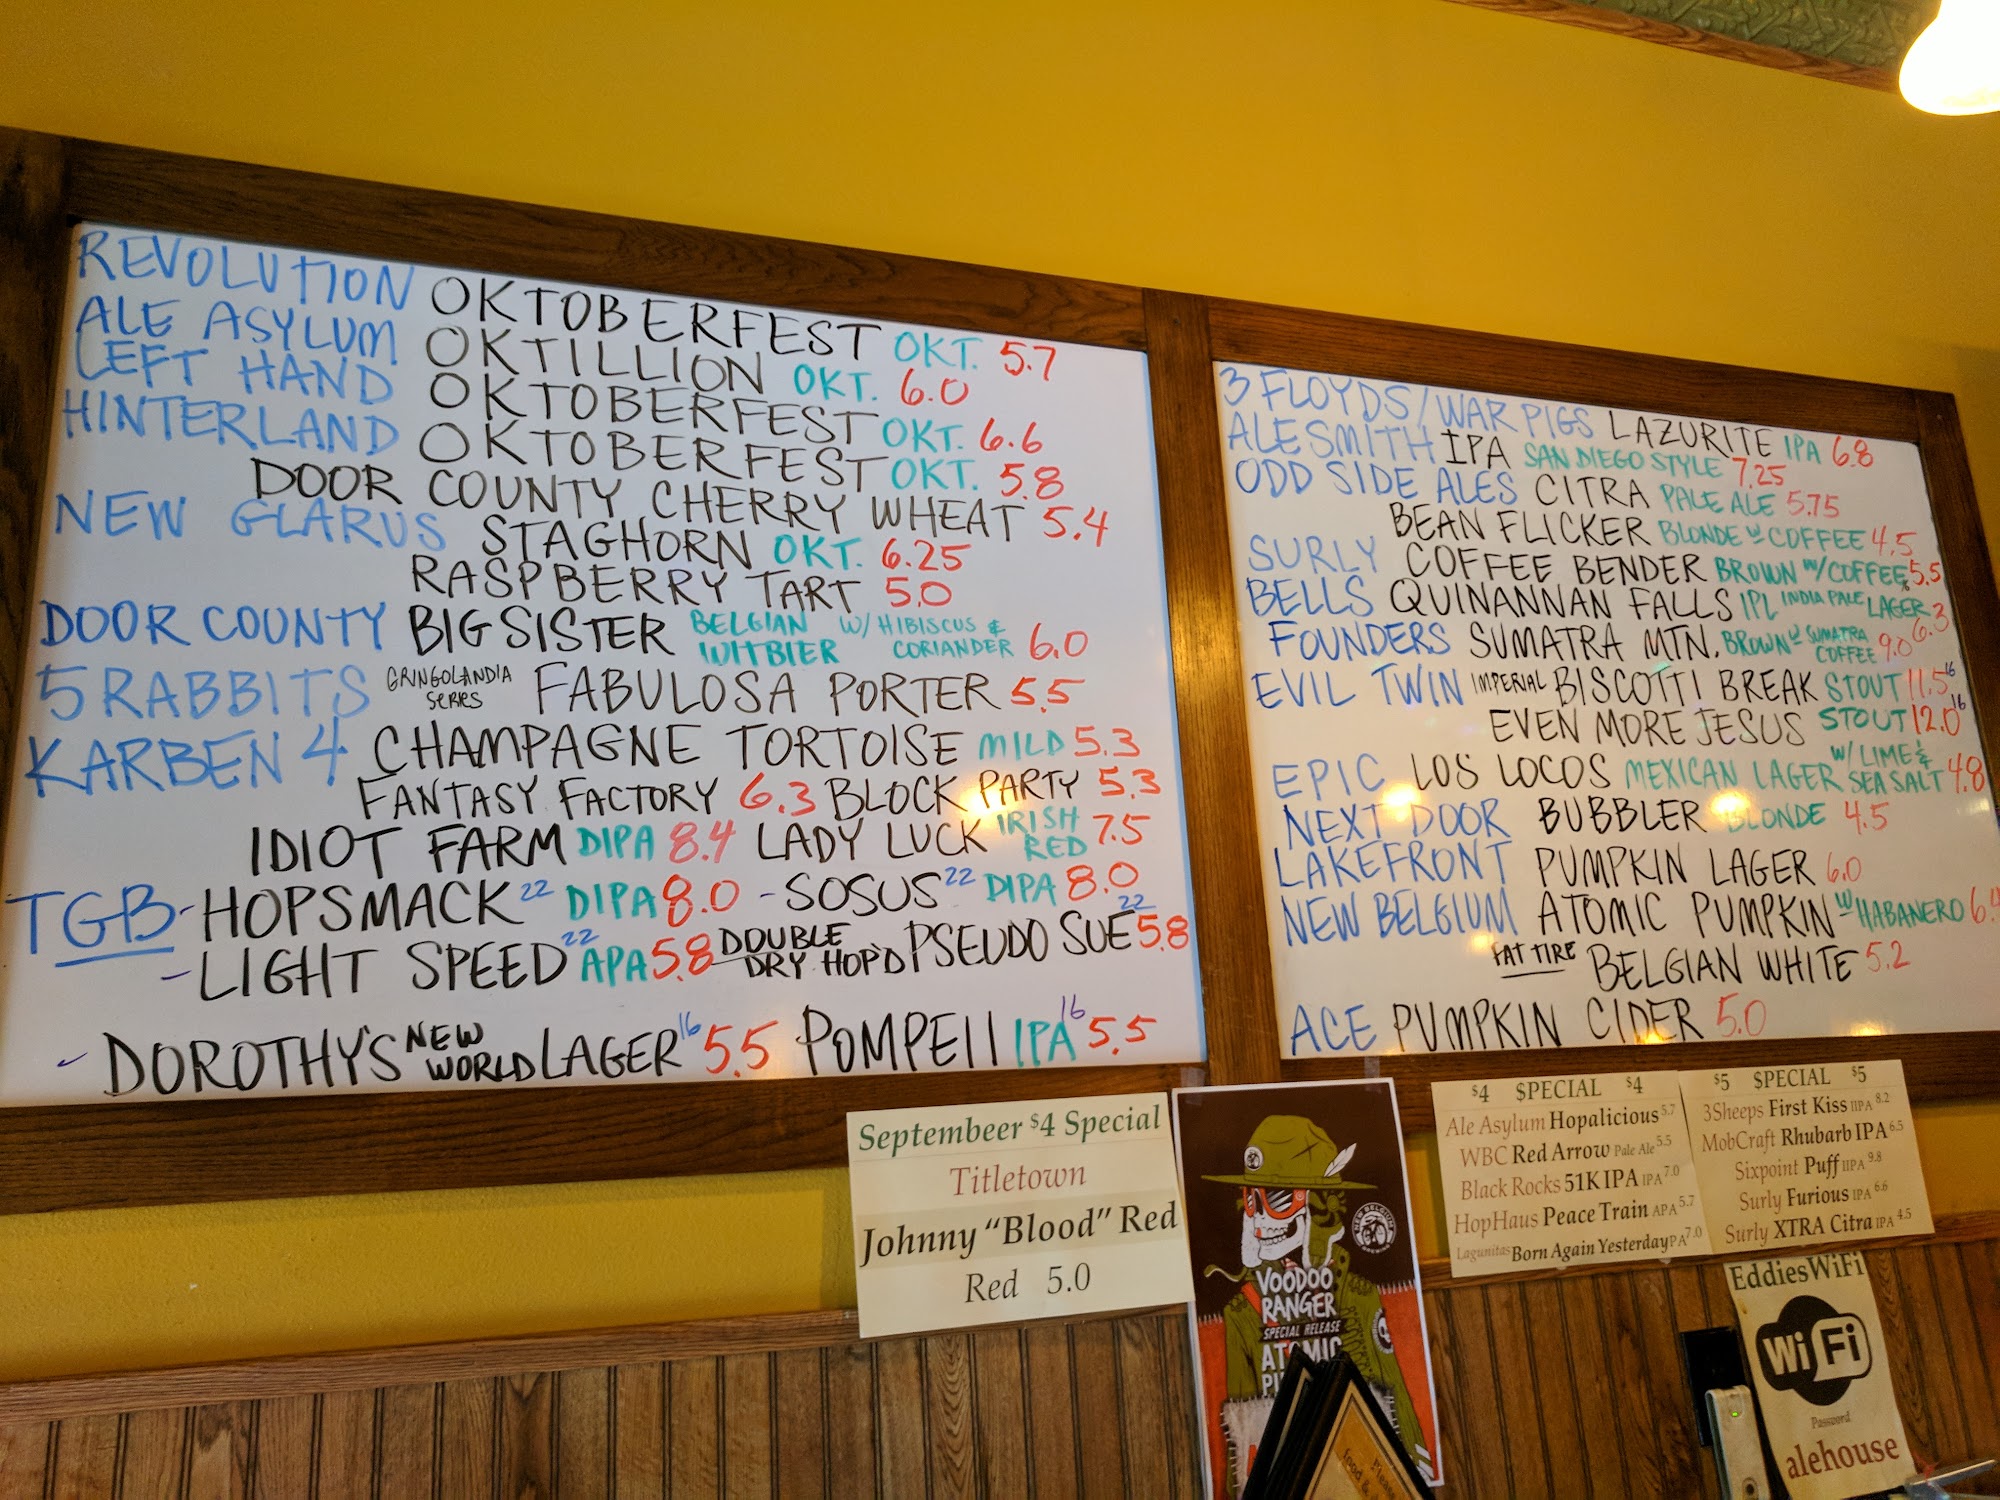 REVOLUTION OKTOBERFEST OKT. 5.7
ALE ASYLUM OKTILLION OKT. 6.0
LEFT HAND OKTOBERFEST OKT. 6.6
HINTERLAND OKTOBERFEST OKT. 5.8
DOOR COUNTY CHERRY WHEAT 5.4
NEW GLARUS STAGHORN OKT. 6.25
RASPBERRY TART 5.0
DOOR COUNTY BIG SISTER BELGIAN WITBIER W/ HIBISCUS & CORIANDER 6.0
5 RABBITS GRINGOLANDIA SERIES FABULOSA PORTER 5.5
KARBEN 4 CHAMPAGNE TORTOISE MILD 5.3
FANTASY FACTORY 6.3 BLOCK PARTY 5.3
IDIOT FARM DIPA 8.4 LADY LUCK IRISH RED 7.5
TGB - HOPSMACK 22 DIPA 8.0 - SOSUS 22 DIPA 8.0
- LIGHT SPEED 22 APA 5.8 DOUBLE DRY HOP'D PSEUDO SUE 22 5.8
- DOROTHY'S NEW WORLD LAGER 16 5.5 POMPEII IPA 16 5.5
3 FLOYDS/WAR PIGS LAZURITE IPA 6.8
ALESMITH IPA SAN DIEGO STYLE 7.25
ODD SIDE ALES CITRA PALE ALE 5.75
BEAN FLICKER BLONDE W COFFEE 4.5
SURLY COFFEE BENDER BROWN W/COFFEE 5.5
BELLS QUINANNAN FALLS IPL INDIA PALE LAGER 6.3
FOUNDERS SUMATRA MTN. BROWN W SUMATRA COFFEE 9.0
EVIL TWIN IMPERIAL BISCOTTI BREAK STOUT 11.5 16
EVEN MORE JESUS STOUT 12.0 16
EPIC LOS LOCOS MEXICAN LAGER W/ LIME & SEA SALT 4.8
NEXT DOOR BUBBLER BLONDE 4.5
LAKEFRONT PUMPKIN LAGER 6.0
NEW BELGIUM ATOMIC PUMPKIN W HABANERO
FAT TIRE BELGIAN WHITE 5.2
ACE PUMPKIN CIDER 5.0
Septembeer $4 Special
Titletown
Johnny "Blood" Red
Red 5.0
NEW BELGIUM BREWING
VOODOO
RANGER
SPECIAL RELEASE
ATOMIC
$4 $PECIAL $4
Ale Asylum Hopalicious 5.7
WBC Red Arrow Pale Ale 5.5
Black Rocks 51K IPA IPA 7.0
HopHaus Peace Train APA 5.7
Lagunitas Born Again Yesterday PA 7.0
$5 $PECIAL $5
3Sheeps First Kiss IIPA 8.2
MobCraft Rhubarb IPA 6.5
Sixpoint Puff IIPA 9.8
Surly Furious IPA 6.6
Surly XTRA Citra IPA 4.5
EddiesWiFi
WiFi
Password
alehouse